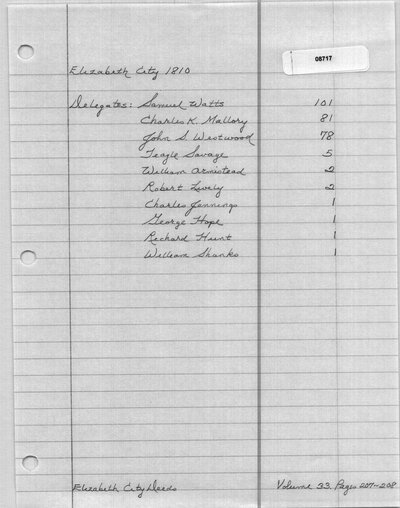 08717
Elizabeth City 1810
Delegates: Samuel Watts 101
Charles K. Mallory 81
John S. Westwood 78
Teagle Savage 5
William Armistead 2
Robert Lively 2
Charles Jennings 1
George Hope 1
Richard Hunt 1
William Shanks 1
Elizabeth City Deeds Volume 33, Pages 207-208